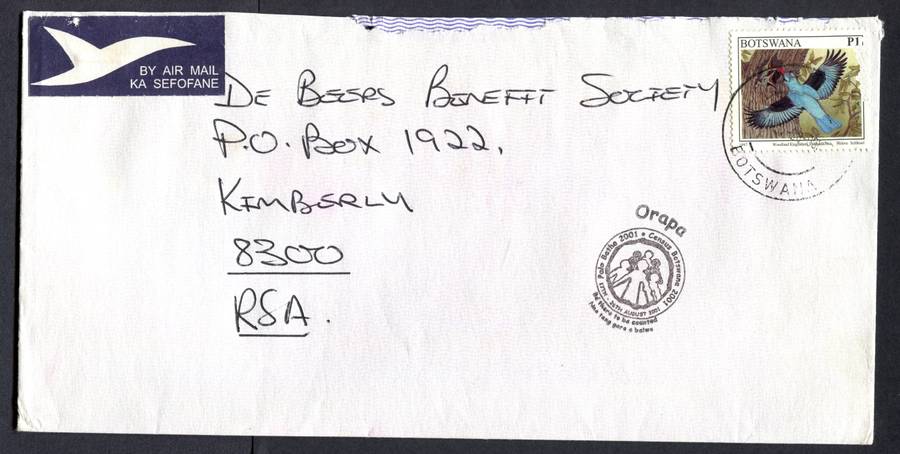 BY AIR MAIL
KA SEFOFANE
BOTSWANA P1
DE BEERS BENEFIT SOCIETY
P.O. BOX 1922,
KIMBERLY
8300
RSA.
BOTSWANA
Orapa
Palo Batho 2001 • Census Botswana 2001
17TH - 26TH AUGUST 2001
Be there to be counted
Nno teng gore o balwe